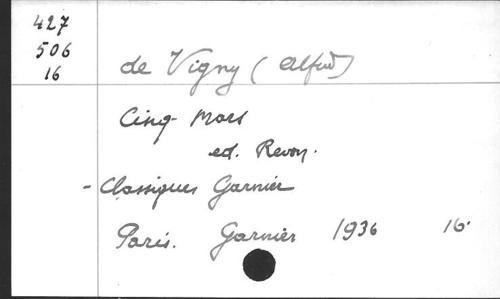 427
506
16
de Vigny (Alfred)
Cinq Mars
ed. Revon.
- Classiques Garnier
Paris. Garnier 1936 16°